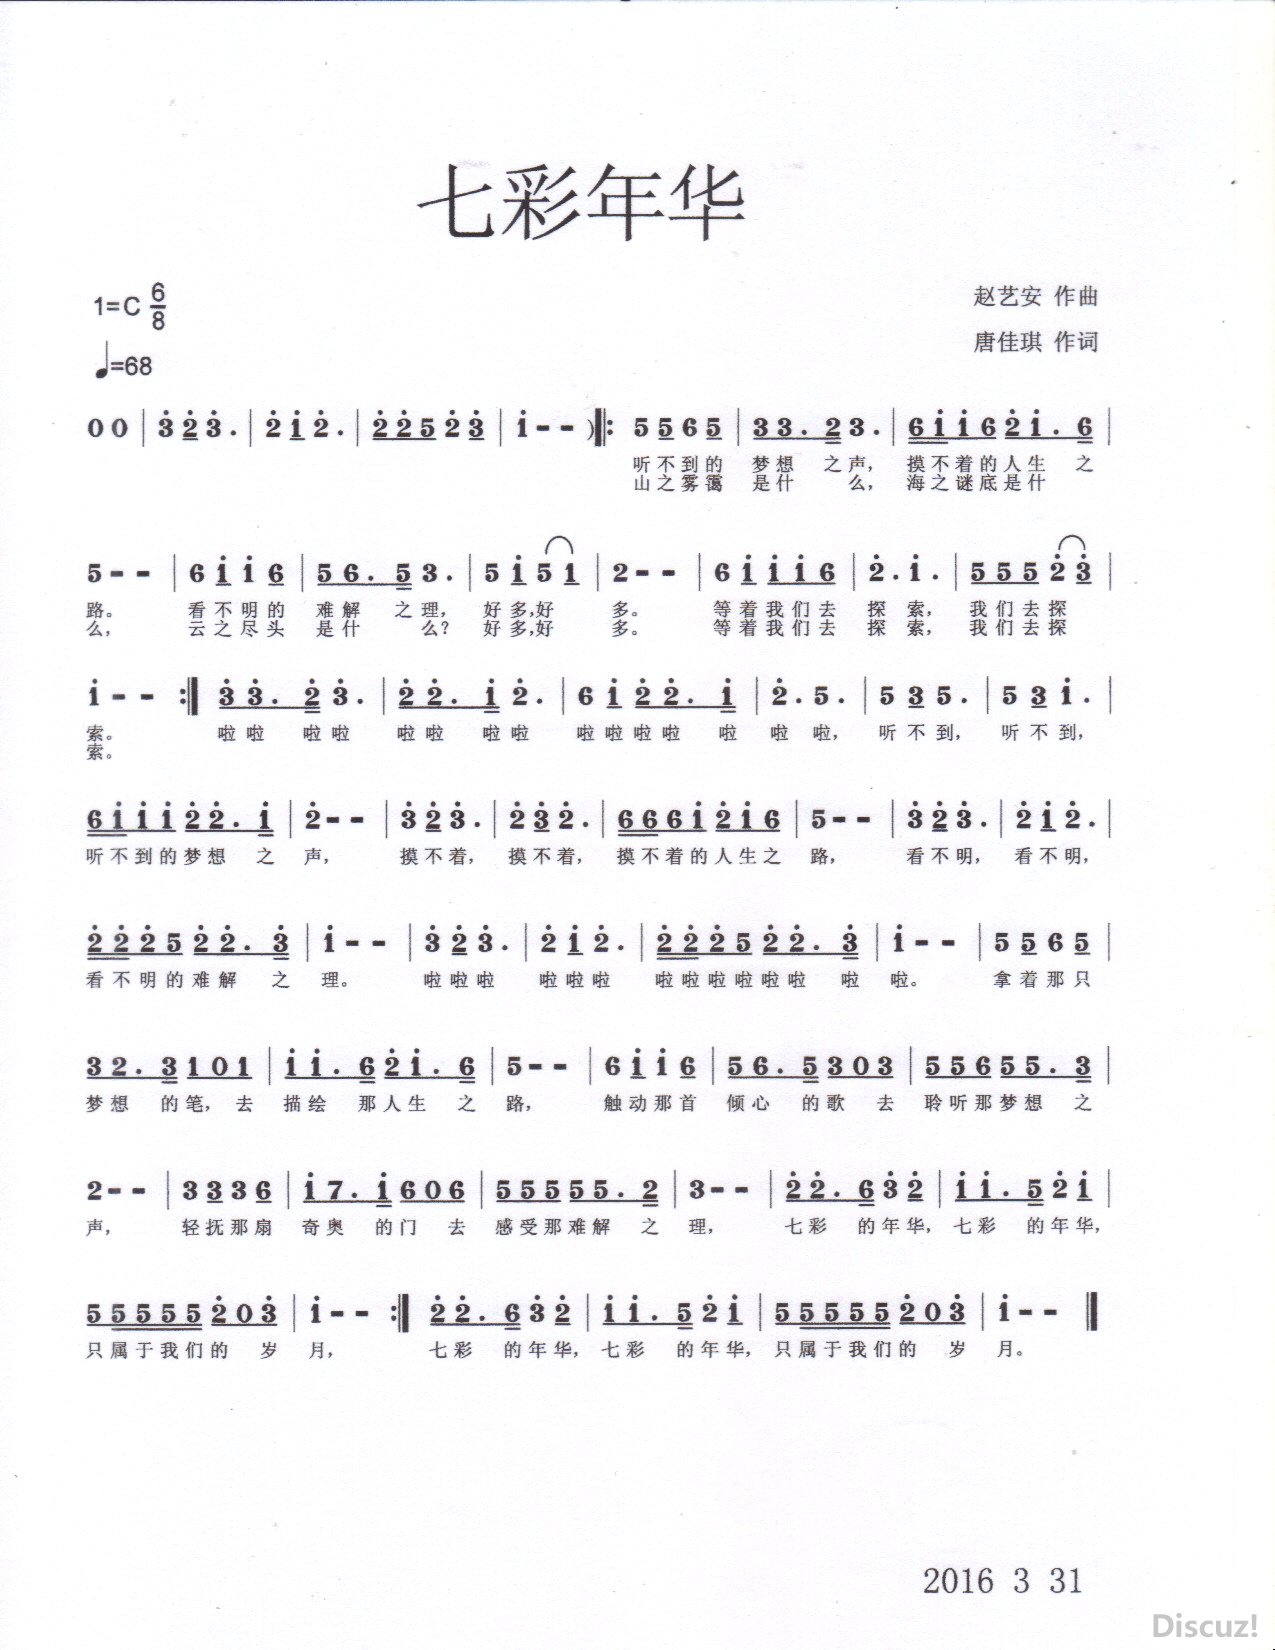 七彩年华
1=C 6/8
赵艺安 作曲
♩=68
唐佳琪 作词
0 0 | 3 2 3. | 2 1 2. | 2 2 5 2 3 | 1 - - ) ‖: 5 5 6 5 | 3 3. 2 3. | 6 1 1 6 2 1. 6 |
听不到的 梦想 之声， 摸不着的人生 之
山之雾霭 是什 么， 海之谜底是什
5 - - | 6 1 1 6 | 5 6. 5 3. | 5 1 5 1 | 2 - - | 6 1 1 1 6 | 2. 1. | 5 5 5 2 3 |
路。 看不明的 难解 之理， 好多,好 多。 等着我们去 探 索， 我们去探
么， 云之尽头 是什 么？ 好多,好 多。 等着我们去 探 索， 我们去探
1 - - :‖ 3 3. 2 3. | 2 2. 1 2. | 6 1 2 2. 1 | 2. 5. | 5 3 5. | 5 3 1. |
索。 啦啦 啦啦 啦啦 啦啦 啦啦啦啦 啦 啦 啦， 听不到， 听不到，
索。
6 1 1 1 2 2. 1 | 2 - - | 3 2 3. | 2 3 2. | 6 6 6 1 2 1 6 | 5 - - | 3 2 3. | 2 1 2. |
听不到的梦想 之 声， 摸不着， 摸不着， 摸不着的人生之 路， 看不明， 看不明，
2 2 2 5 2 2. 3 | 1 - - | 3 2 3. | 2 1 2. | 2 2 2 5 2 2. 3 | 1 - - | 5 5 6 5 |
看不明的难解 之 理。 啦啦啦 啦啦啦 啦啦啦啦啦啦 啦 啦。 拿着那只
3 2. 3 1 0 1 | 1 1. 6 2 1. 6 | 5 - - | 6 1 1 6 | 5 6. 5 3 0 3 | 5 5 6 5 5. 3 |
梦想 的笔，去 描绘 那人生 之 路， 触动那首 倾心 的歌 去 聆听那梦想 之
2 - - | 3 3 3 6 | 1 7. 1 6 0 6 | 5 5 5 5 5. 2 | 3 - - | 2 2. 6 3 2 | 1 1. 5 2 1 |
声， 轻抚那扇 奇奥 的门 去 感受那难解 之 理， 七彩 的年华，七彩 的年华，
5 5 5 5 5 2 0 3 | 1 - - :‖ 2 2. 6 3 2 | 1 1. 5 2 1 | 5 5 5 5 5 2 0 3 | 1 - - ‖
只属于我们的 岁 月， 七彩 的年华，七彩 的年华，只属于我们的 岁 月。
2016 3 31
Discuz!